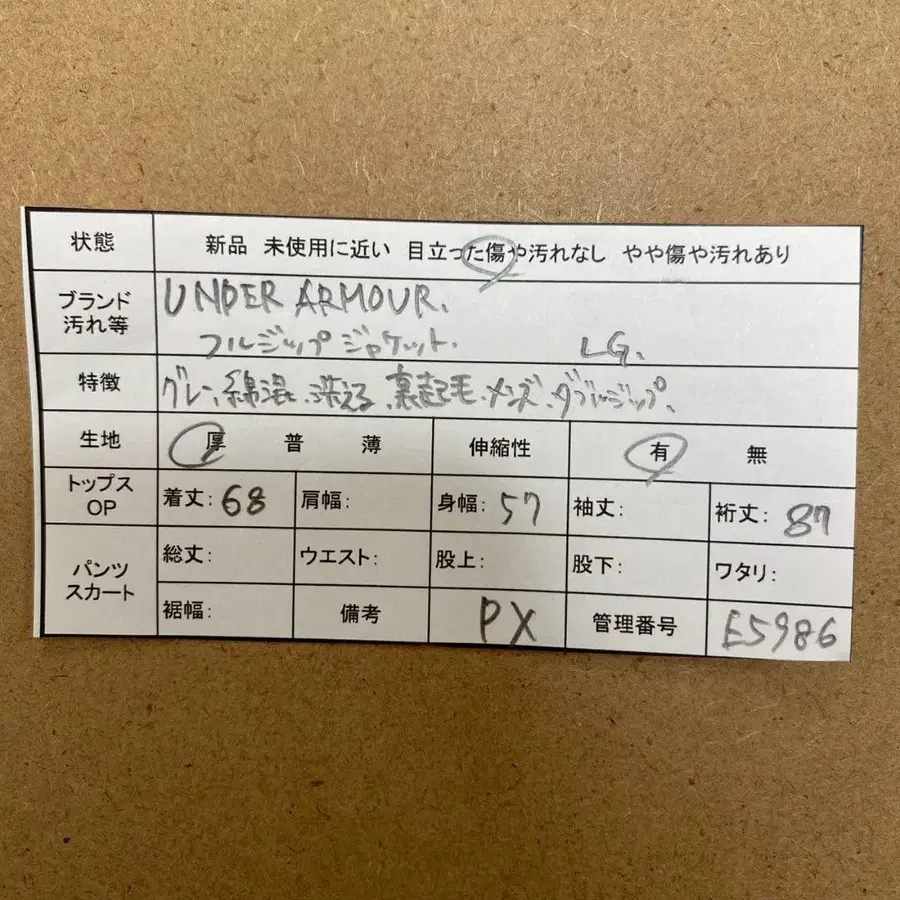 状態 新品 未使用に近い 目立った傷や汚れなし やや傷や汚れあり
ブランド 汚れ等 UNDER ARMOUR.
フルジップジャケット. LG.
特徴 グレー、綿混、洗える、裏起毛、メンズ、ダブルジップ、
生地 厚 普 薄 伸縮性 有 無
トップス OP 着丈:68 肩幅: 身幅:57 袖丈: 裄丈:87
パンツ スカート 総丈: ウエスト: 股上: 股下: ワタリ:
裾幅: 備考 PX 管理番号 E5986